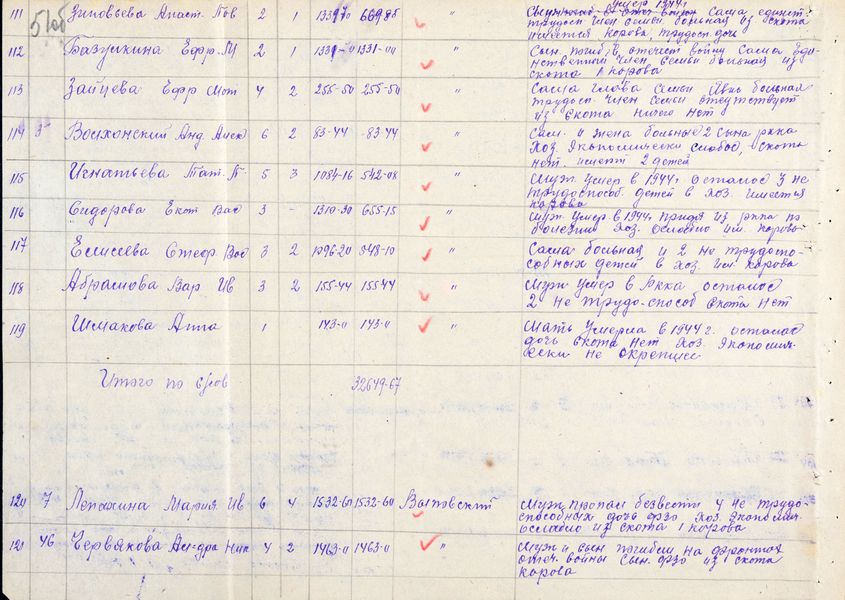 умер 1944г.
111 Зиновьева Анаст. Пав 2 1 1339-70 669-85 " Сын Сама единст
5/об трудосп член семьи больная из скота
имеется корова, трудосп. дочь
112 Базункина Ефр. М 2 1 1331-00 1331-00 " Сын погиб в отечест войну Сама еди-
нственный член семьи больная из
скота 1 корова
113 Зайцева Ефр Мат 4 2 255-50 255-50 " Сама глава семьи Явл больная
трудосп член семьи отсутствует
из скота ничего нет
114 3 Волхонский Анд. Алек 6 2 83-44 -83-44 " Сам и жена больные 2 сына ркка
Хоз. Экономически слабое, скота
нет. имеет 2 детей
115 Игнатьева Тат. П. 5 3 1084-16 542-08 " Муж умер в 1944г. осталось 3 не
трудоспособ. детей в хоз. имеется
корова
116 Сидорова Екат Вас 3 1310-30 655-15 " Муж умер в 1944г. придя из ркка по
болезни Хоз. ослабло им. корова
117 Елисеева Стеор. Вас 3 2 1696-20 848-10 " Сама больная и 2 не трудоспо-
собных детей в хоз. им корова
118 Абрамова Вар Ив 3 2 155-44 155-44 " Муж умер в Ркка осталось
2 не трудо-способ скота нет
119 Шмакова Анна 1 143-11 143-11 " Мать умерла в 1944 г. осталась
дочь скота нет хоз. экономич-
ески не окрепшее
Итого по с/сов 32649-67
120 7 Лепахина Мария Ив 6 4 1532-60 1532-60 Вытовский Муж пропал безвести 4 не трудо-
способных дочь фзо хоз экономич.
ослабло из скота 1 корова
121 46 Червякова Ал-дра Ник 4 2 1463-11 1463-11 " Муж и сын погибли на фронтах
отеч. войны Сын. фзо из скота
корова